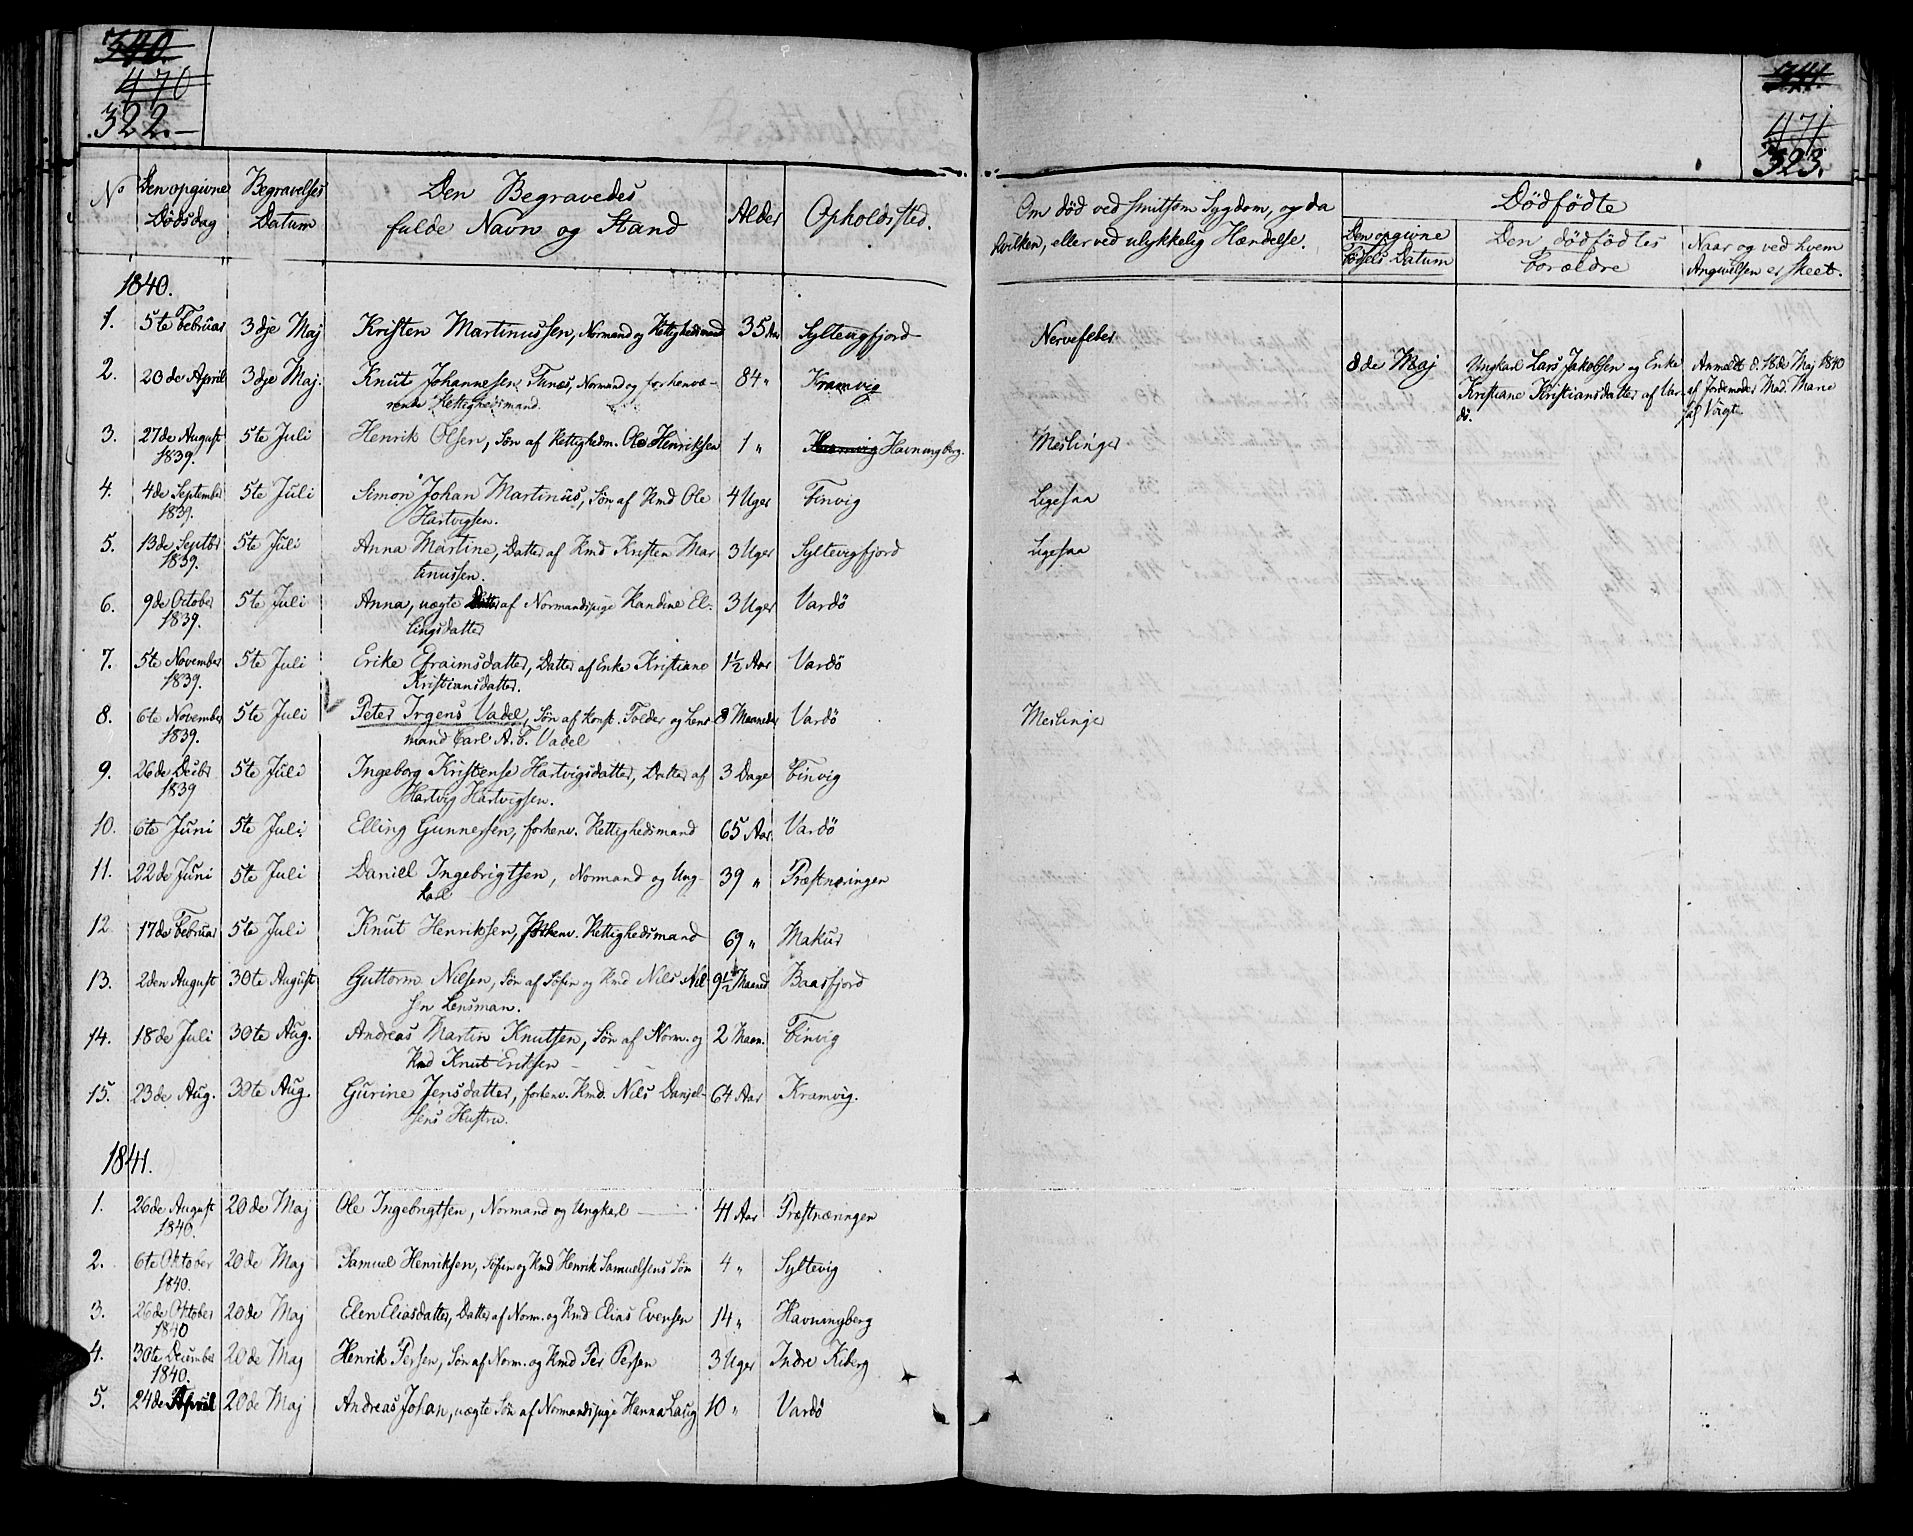 340.
470
322.
341
471
323.
No
Den opgivne Dødsdag
Begravelses Datum
Den Begravedes fulde Navn og Stand
Alder
Opholdsted.
Om død ved smitsom Sygdom, og da hvilken, eller ved ulykkelig Hændelse.
Dødfødte
Den opgivne Fødsels Datum
Den dødfødtes Forældre
Naar og ved hvem Angivelsen er skeet.
1840.
1. 5te Februar 3dje Maj Kristen Martinussen, Normand og Rettighedsmand 35 Aar Syltevigfjord Nervefeber
2. 20de April 3dje Maj. Knut Johannesen Funæs, Normand og forhenvæ-
rende Rettighedsmand. 84 " Kramvig
8de Maj Ungkarl Lars Jakobsen og Enke Anmeldt d. 18de Maj 1840
Kristiane Kristiansdatter af Var- af Jordemoder Mad. Marie
dø. Vagt
3. 27de August 5te Juli Henrik Olsen, Søn af Rettighm. Ole Henriksen 1 " Kramvig Havningberg. Meslinger
1839.
4. 4de September 5te Juli Simon Johan Martinus, Søn af Rmd Ole 4 Uger Finvig Ligesaa
1839. Hartvigsen.
5. 13de Septbr 5te Juli Anna Martine, Datter af Rmd Kristen Mar 3 Uger Syltevigfjord Ligesaa
1839. tinussen.
6. 9de October 5te Juli Anna, uægte Datter af Normandspige Randine El- 3 Uger Vardø
1839. lingsdatter
7. 5te November 5te Juli Erike Efraimsdatter, Datter af Enke Kristiane 1½ Aar Vardø
1839. Kristiansdatter.
8. 6te November 5te Juli Peter Irgens Vadel, Søn af Konst. Tolder og Lens 8 Maaneder Vardø Meslinger
1839. mand Carl A. F. Vadel
9. 26de Decbr 5te Juli Ingeborg Kristense Hartvigsdatter, Datter af 3 Dage Finvig
1839 Hartvig Hartvigsen.
10. 6te Juni 5te Juli. Elling Gunnessen, forhenv. Rettighedsmand 65 Aar. Vardø
11. 22de Juni 5te Juli Daniel Ingebrigtsen, Normand og Ung- 39 " Præstnæringen
karl
12 17de Februar 5te Juli Knut Henriksen, forhenv. Rettighedsmand 69 " Makur
13. 2den August 30te August Guttorm Nilsen, Søn af Søfin og Rmd Nils Nil 9½ Maaned Baasfjord
sen Lensman.
14. 18de Juli 30te Aug. Andreas Martin Knutsen, Søn af Norm. og 2 Maan. Finvig
Rmd Knut Eriksen
15. 23de Aug. 30te Aug. Gurine Jensdatter, forhenv. Rmd. Nils Danjel- 64 Aar Kramvig.
sens Hustru.
1841.
1. 26de August 20de Maj Ole Ingebrigtsen, Normand og Ungkarl 41 Aar Præstnæringen
1840.
2. 6te Oktober 20de Maj Samuel Henriksen, Søfin og Rmd Henrik Samuelsens Søn 4 " Syltevig
1840.
3. 26de Oktober 20de Maj Elen Eliasdatter, Datter af Norm. og Rmd Elias Evensen 14 " Havningberg
1840
4. 30te December 20de Maj Henrik Persen, Søn af Norm. og Rmd Per Persen 3 Uger Indre Kiberg
1840.
5. 24de April 20de Maj Andreas Johan, uægte Søn af Normandspige Hanna Laug 10 " Vardø